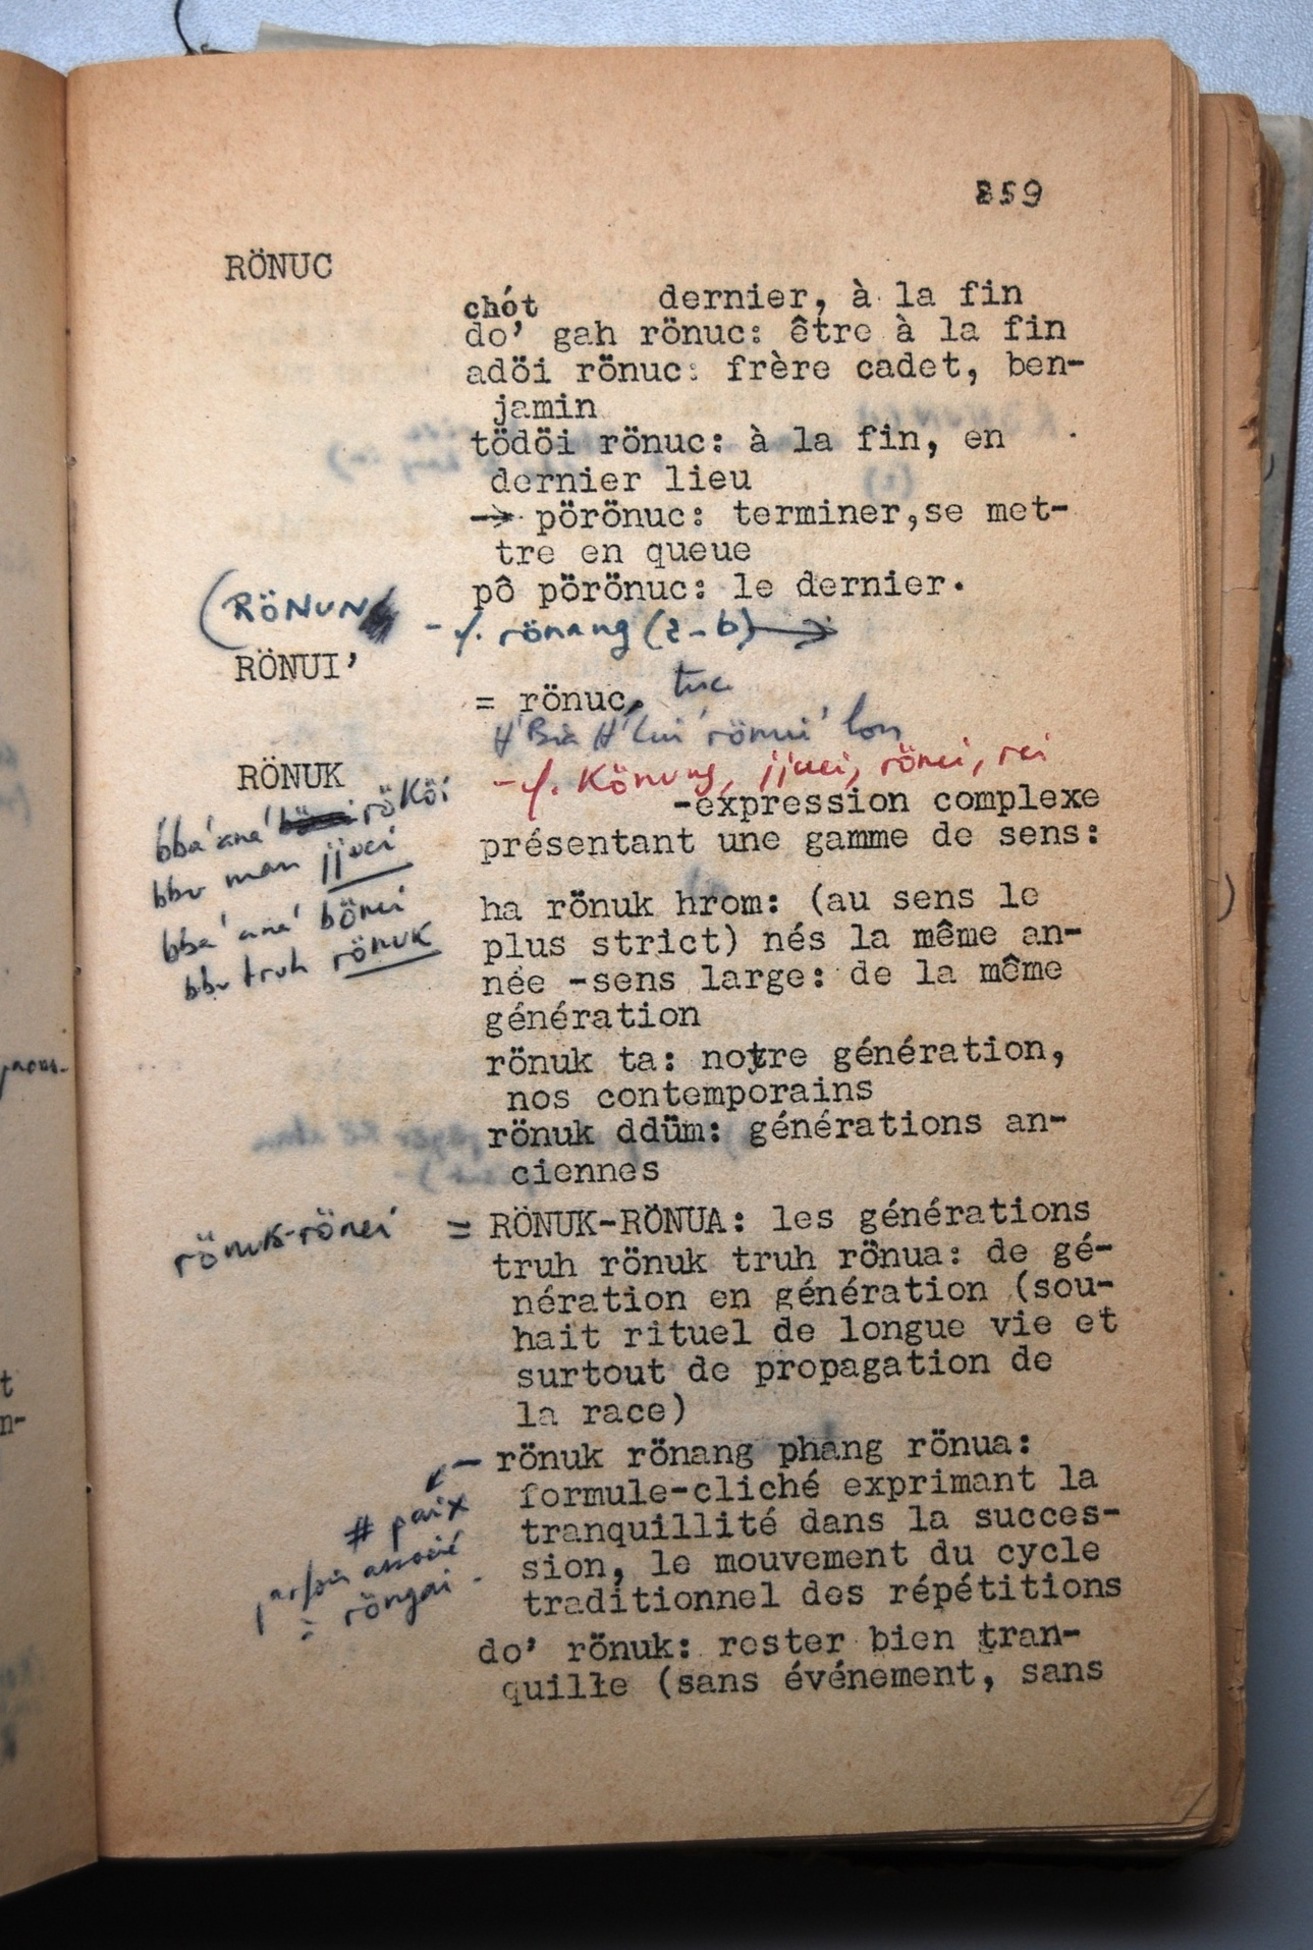 859
RÖNUC
chót dernier, à la fin
do' gah rönuc: être à la fin
adöi rönuc: frère cadet, ben-
jamin
tödöi rönuc: à la fin, en
dernier lieu
→ pörönuc: terminer,se met-
tre en queue
pô pörönuc: le dernier.
(RÖNUN
- f. rönang (2-b) →
RÖNUI'
= rönuc, tuc
H'Bia H'Lui 'rönui' lon
RÖNUK
- f. Könung, jjuei, rönei, rei
-expression complexe
présentant une gamme de sens:
bba' ana' röKöi
bbu man jjuei
bba' ana' bönei
bbu truh rönuk
ha rönuk hrom: (au sens le
plus strict) nés la même an-
née -sens large: de la même
génération
rönuk ta: notre génération,
nos contemporains
rönuk ddüm: générations an-
ciennes
rönuk-rönei = RÖNUK-RÖNUA: les générations
truh rönuk truh rönua: de gé-
nération en génération (sou-
hait rituel de longue vie et
surtout de propagation de
la race)
- rönuk rönang phang rönua:
formule-cliché exprimant la
tranquillité dans la succes-
sion, le mouvement du cycle
traditionnel des répétitions
# paix
parfois associé
à röngai -
do' rönuk: rester bien tran-
quille (sans événement, sans